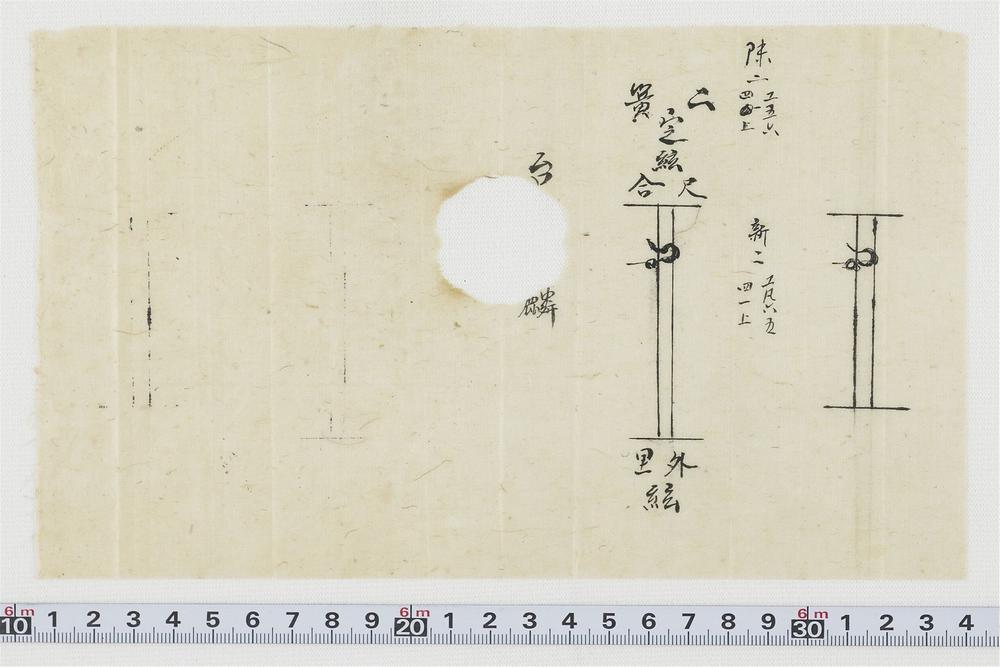 陳二
工五六
四四上
二
定絃
合尺
外
里
絃
新二
工尺六五
四一上
台
6m 6m 6m
10 1 2 3 4 5 6 7 8 9 20 1 2 3 4 5 6 7 8 9 30 1 2 3 4